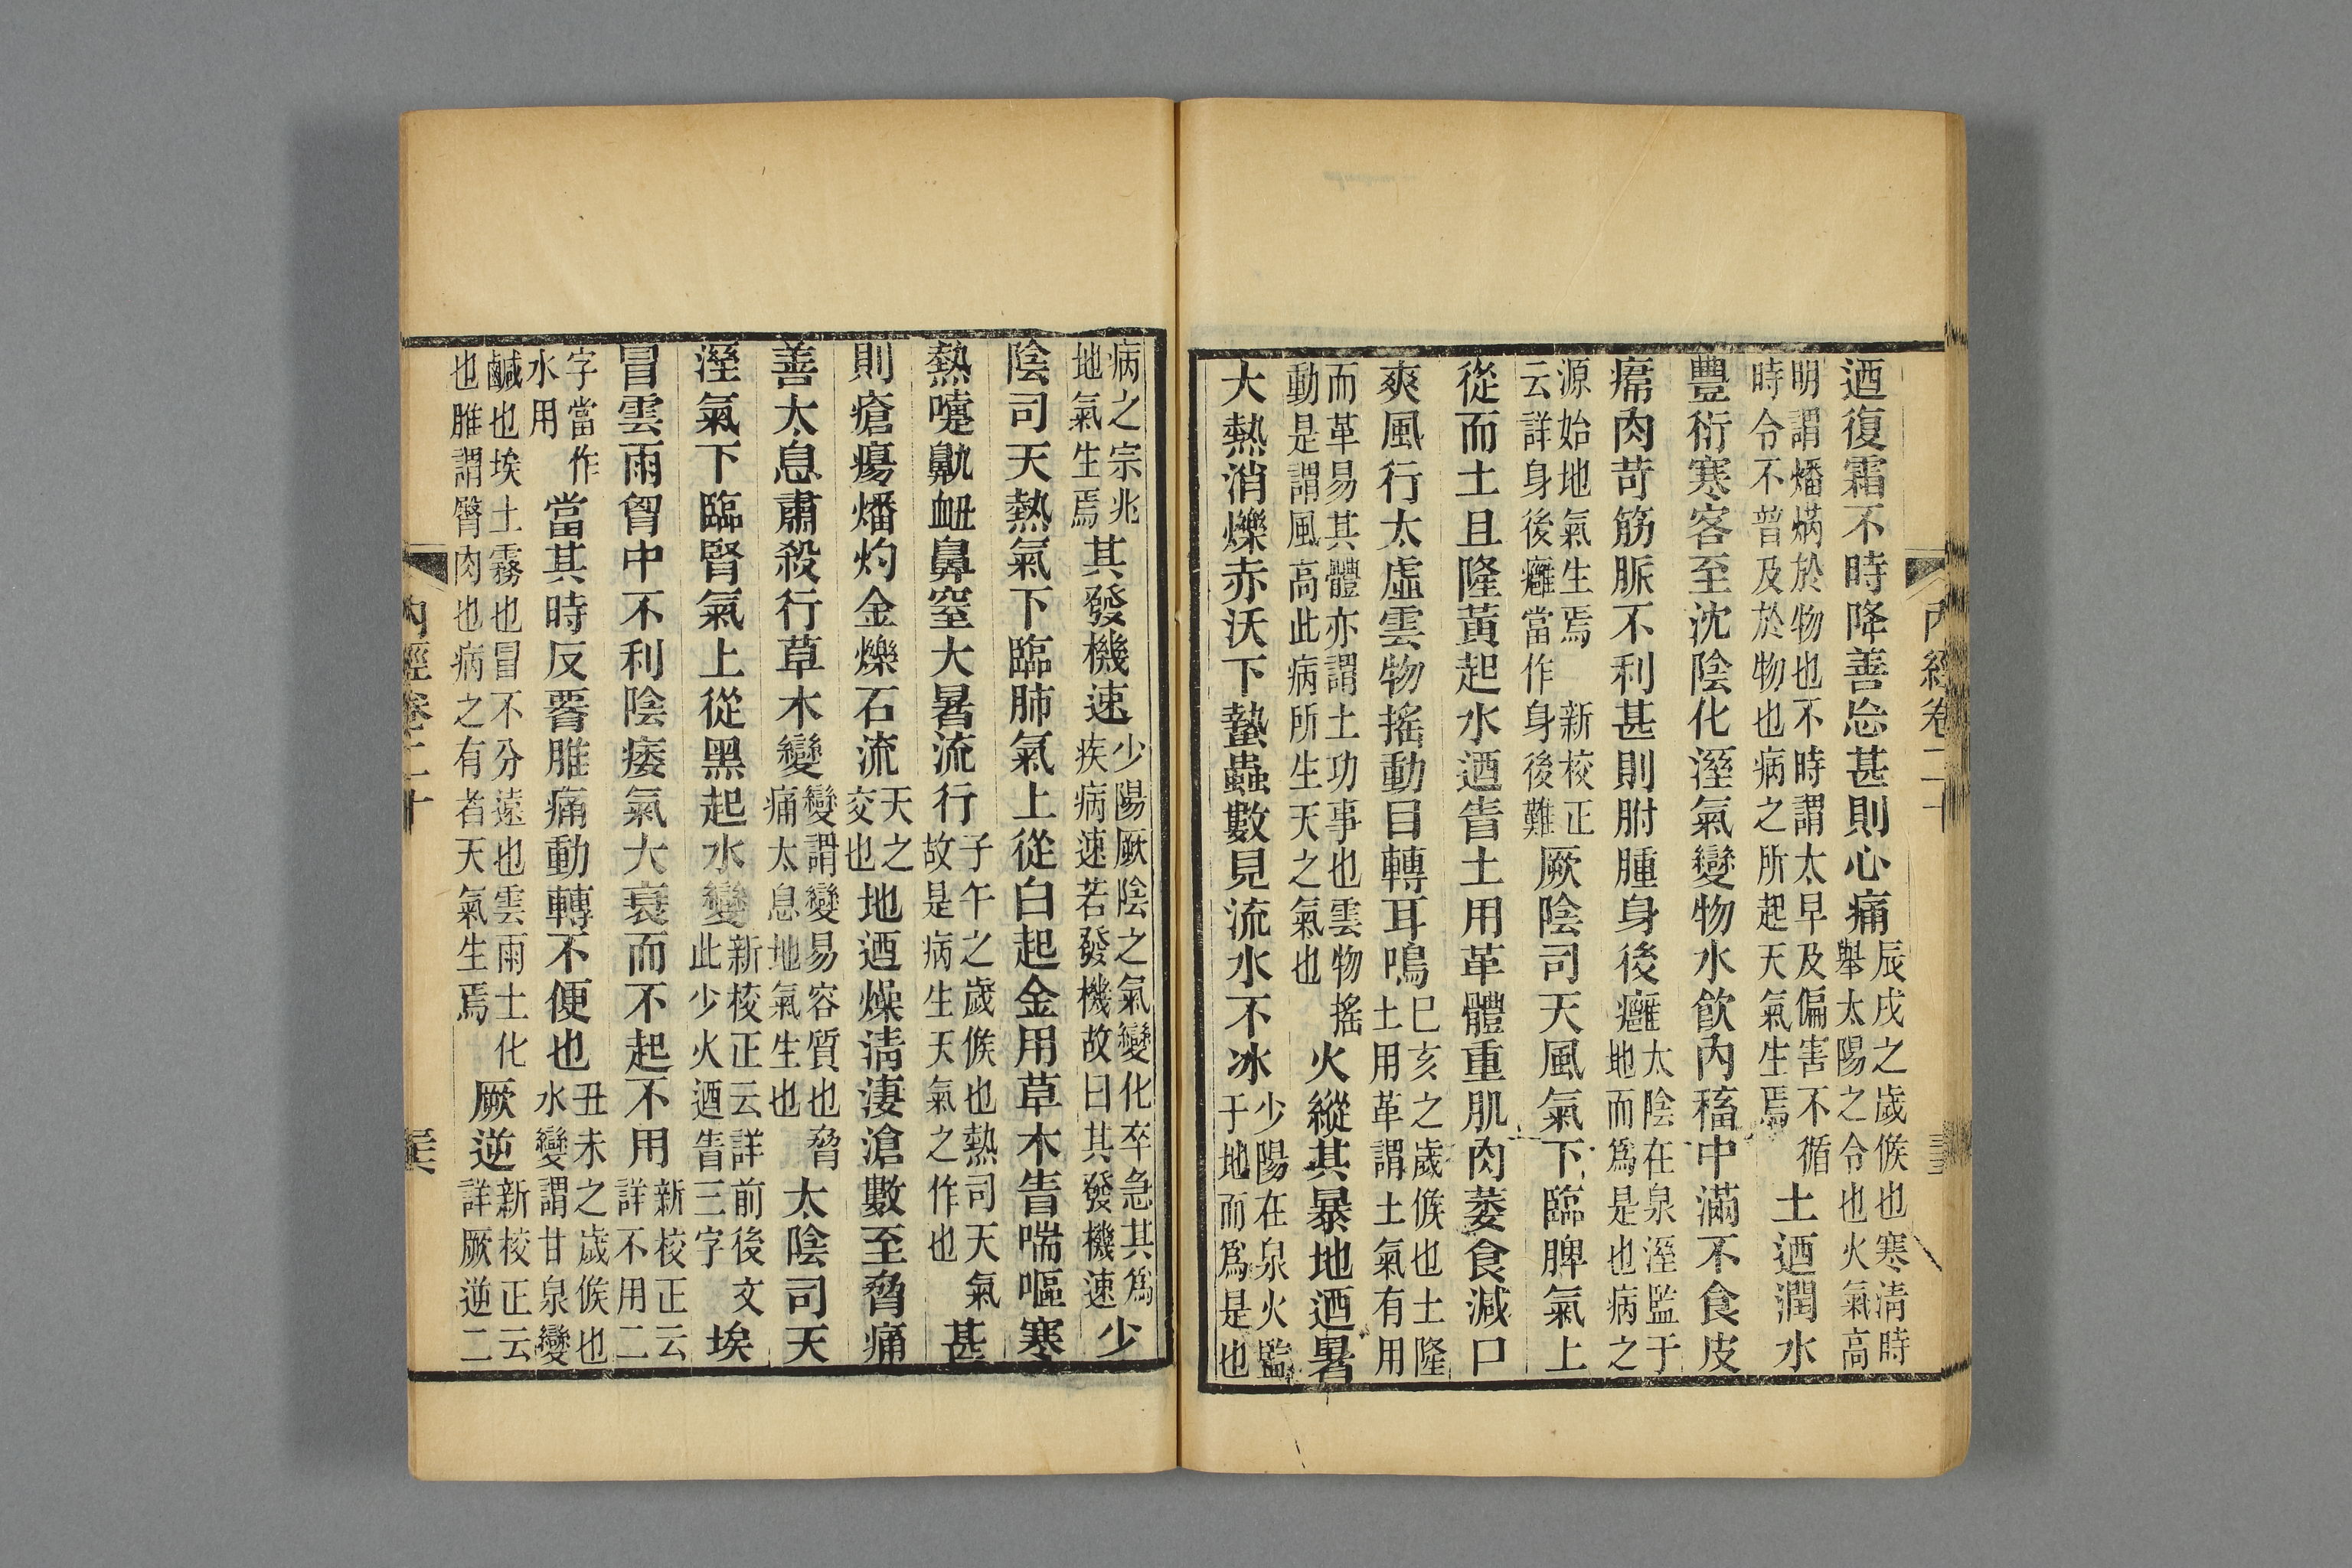 迺復霜不時降善忘甚則心痛辰戌之歲候也寒清時舉太陽之令也火氣高
明謂燔焫於物也不時謂太早及偏害不循時令不普及於物也病之所起天氣生焉土迺潤水
豐衍寒客至沈陰化溼氣變物水飮內稸中滿不食皮
𤸷肉苛筋脈不利甚則胕腫身後癰太陰在泉溼監于地而爲是也病之
源始地氣生焉　新校正云詳身後癰當作身後難厥陰司天風氣下臨脾氣上
從而土且隆黃起水迺眚土用革體重肌肉萎食減口
爽風行太虛雲物搖動目轉耳鳴巳亥之歲候也土隆土用革謂土氣有用
而革易其體亦謂土功事也雲物搖動是謂風高此病所生天之氣也火縱其暴地迺暑
大熱消爍赤沃下蟄蟲數見流水不冰少陽在泉火監于地而爲是也
內經卷二十
病之宗兆地氣生焉其發機速少陽厥陰之氣變化卒急其爲疾病速若發機故曰其發機速少
陰司天熱氣下臨肺氣上從白起金用草木眚喘嘔寒
熱嚏鼽衄鼻窒大暑流行子午之歲候也熱司天氣故是病生天氣之作也甚
則瘡瘍燔灼金爍石流天之交也地迺燥清淒滄數至脅痛
善太息肅殺行草木變變謂變易容質也脅痛太息地氣生也太陰司天
溼氣下臨腎氣上從黑起水變新校正云詳前後文此少火迺眚三字埃
冒雲雨胷中不利陰痿氣大衰而不起不用新校正云詳不用二
字當作水用當其時反腰脽痛動轉不便也丑未之歲候也水變謂甘泉變
鹹也埃土霧也冒不分遠也雲雨土化也脽謂臀肉也病之有者天氣生焉厥逆新校正云詳厥逆二
內經卷二十